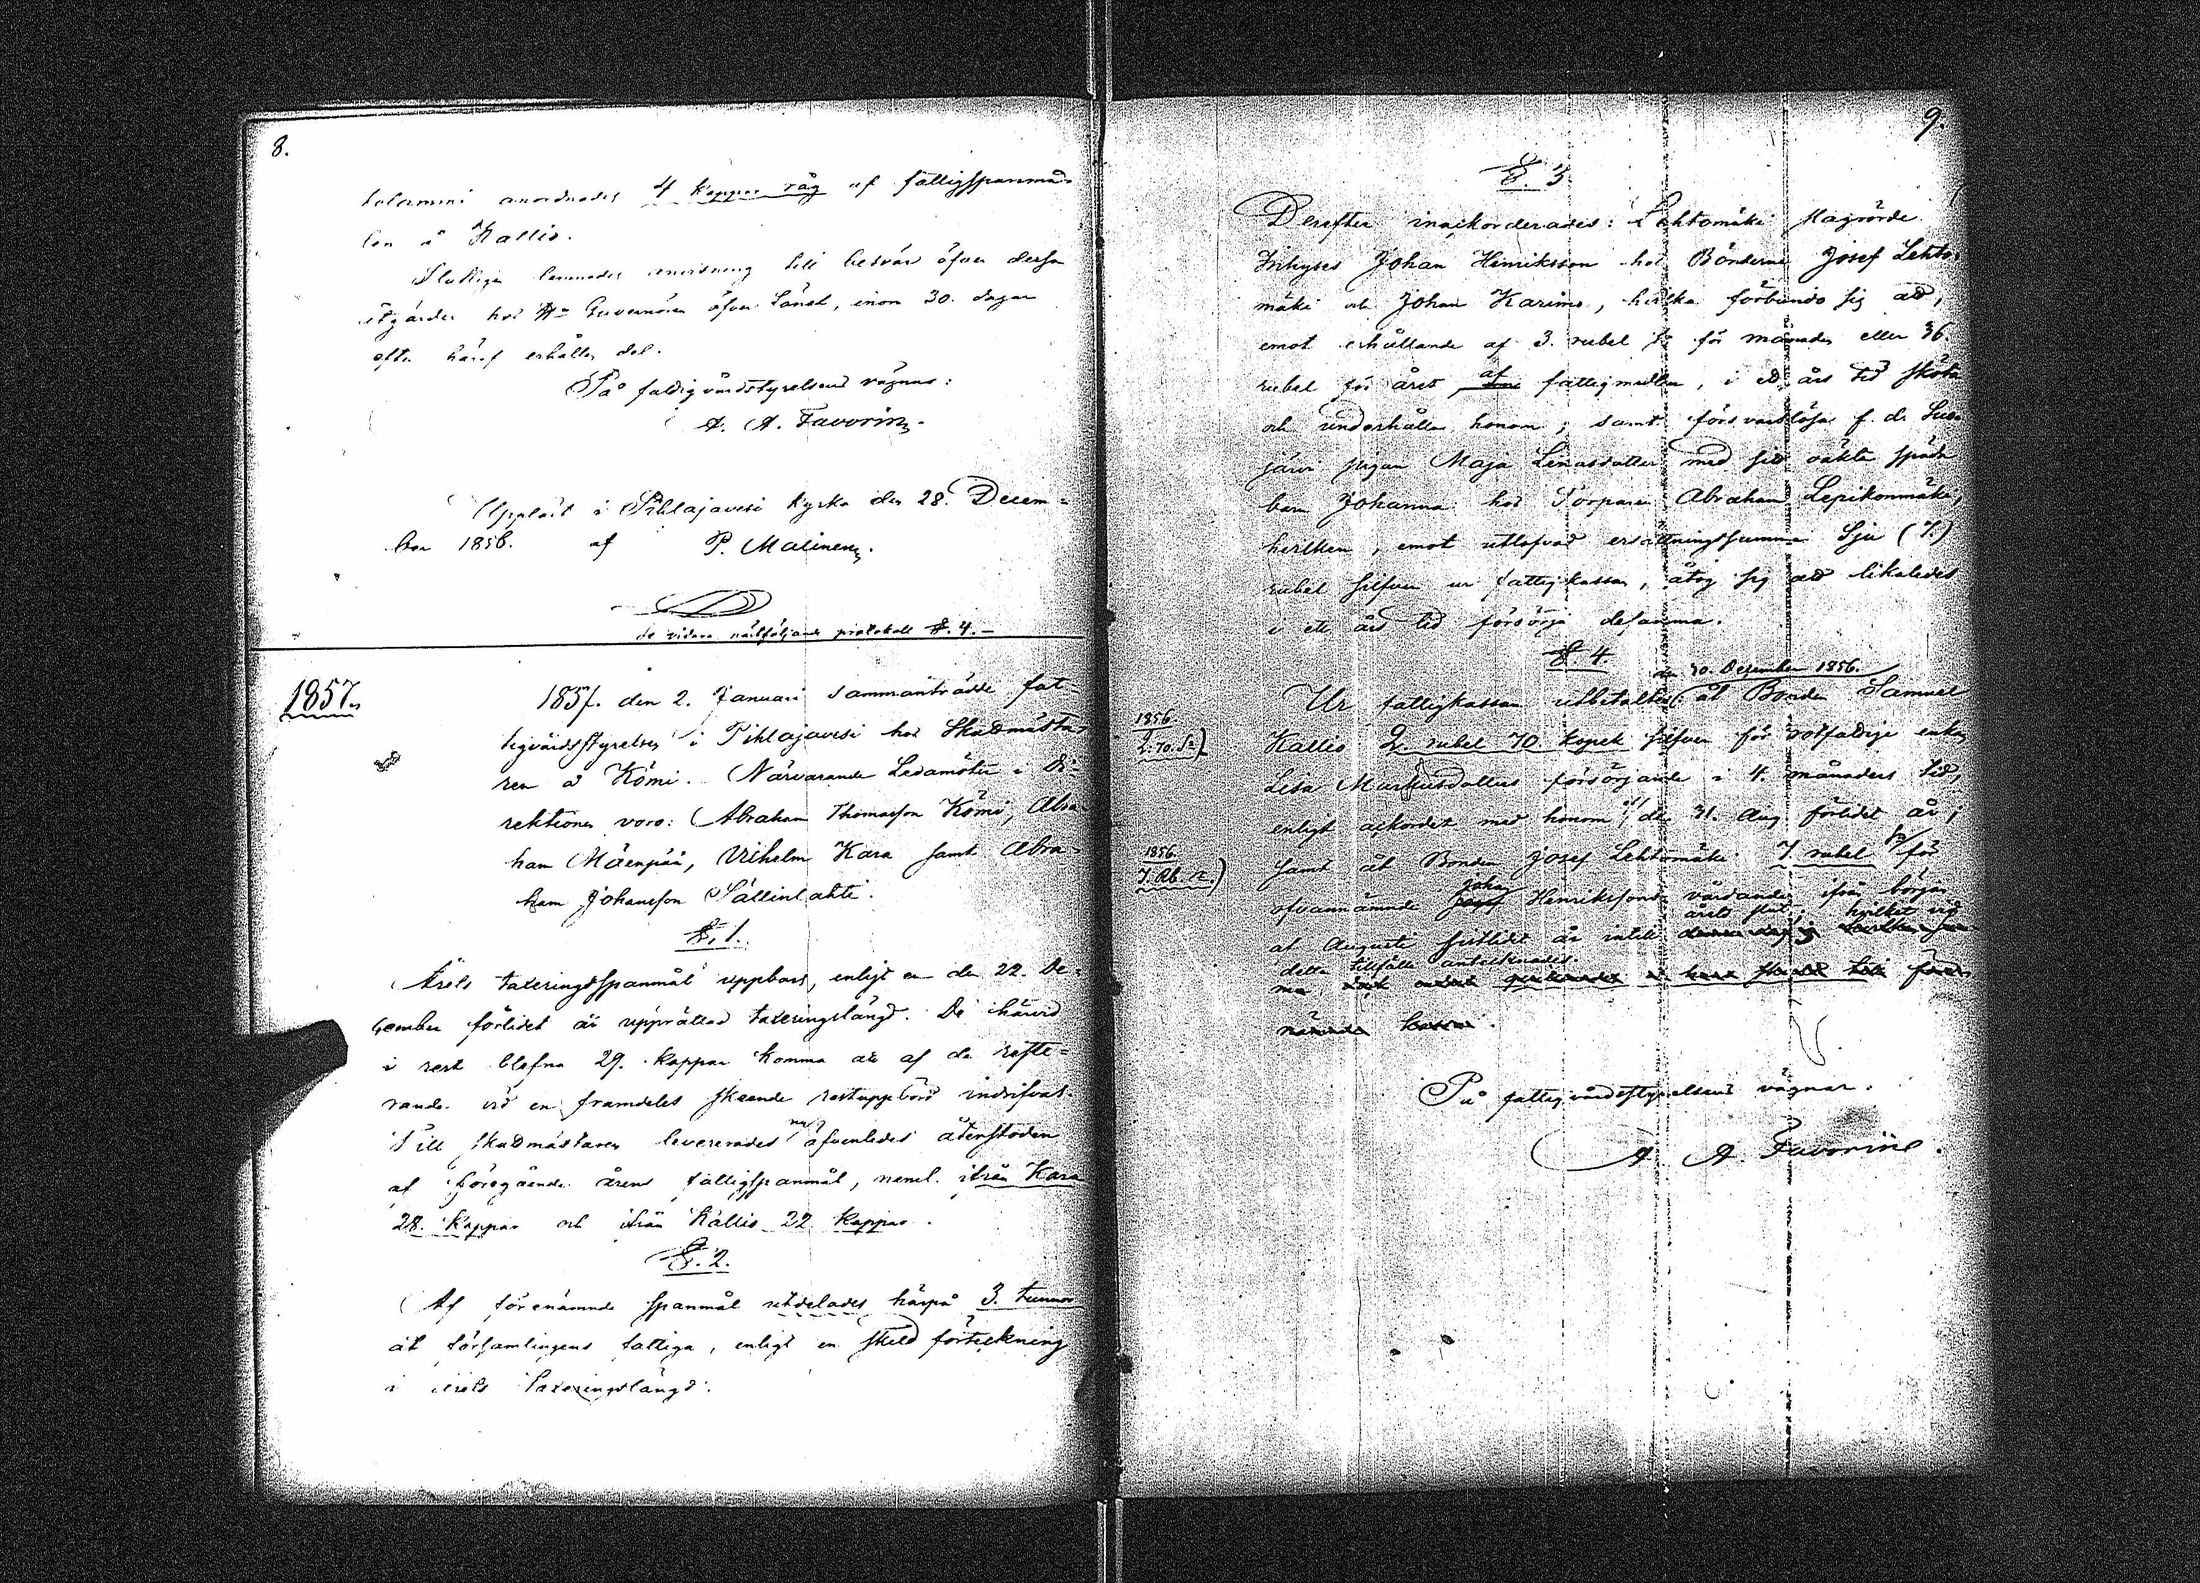 8.
anordnades 4 kappar råg af fattigspanmå-
len å Kallio.
Slutligen lemnades anvisning till besvär öfver dessa
åtgärder hos Hr Guvernören öfver Länet, inon 30. dagar
efter häraf erhållen del.
På fattigvårdstyrelsens vägnar:
A. A. Favorin.
Uppläst i Pihlajavesi kyrka den 28. Decem-
ber 1856. af P. Malinen.
se vidare nästföljande protokoll §. 4.-
1857.
1857. den 2. Januari sammanträdde fat-
tigvårdsstyrelsen i Pihlajavesi hos Skattmästa-
ren å Kömi. Närvarande Ledamöter i Di-
rektionen voro: Abraham Thomasson Kömi, Abra-
ham Mäenpää, Vilhelm Kara samt Abra-
ham Johansson Sällinlahti.
§. 1.
Årets taxeringsspanmål uppbars, enligt en den 22. De-
cember förlidet år upprättad taxeringslängd. De härvid
i rest blefna 29. kappar komma att af de reste-
rande vid en framdeles skeende restuppbörd indrifvas.
Till skattmästaren levererades nu äfvenledes återstoden
af föregående årens fattigspanmål, neml. ifrån Kara
28. kappar och ifrån Kallio 22 kappar.
§. 2.
Af förenämnde spanmål utdelades härpå 3. tunnor
åt församlingens fattiga, enligt en skild förteckning
i årets taxeringslängd.
9.
§. 3
Derefter inackorderades: Lehtomäki
Inhyses Johan Henriksson hos Bönderne Josef Lehto-
mäki och Johan Karimo, hvilka förbundo sig att,
emot erhållande af 3. rubel Sr för månaden eller 36.
rubel för året, af fattigmedlen, i ett års tid sköta
och underhålla honom; samt försvarslösa f. d.
järvi pigan Maja Lenasdotter med sitt oäkta späda
barn Johanna hos Torparen Abraham Lepikonmäki,
hvilken, emot utlofvad ersättningssumma Sju (7.)
rubel silfver ur fattigkassan, åtog sig att likaledes
i ett års tid försörja desamma.
§. 4.
den 30. December 1856.
Ur fattigkassan utbetaltes åt Bonden Samuel
1856.
2. 70. Sr)
Kallio 2. rubel 70. kopek silfver för rotfattige enkan
Lisa Markusdotters försörjande i 4. månaders tid,
enligt ackordet med honom den 31. Aug. förlidet år;
1856.
7. Rb. Sr.)
samt åt Bonden Josef Lehtomäki 7. rubel Sr för
ofvannämnde Johan Henrikssons vårdande ifrån början
af Augusti sistlidet år intill årets slut, hvilket vid
detta tillfälle antecknades.
På fattigvårdsstyrelsens vägnar.
A. A. Favorin.